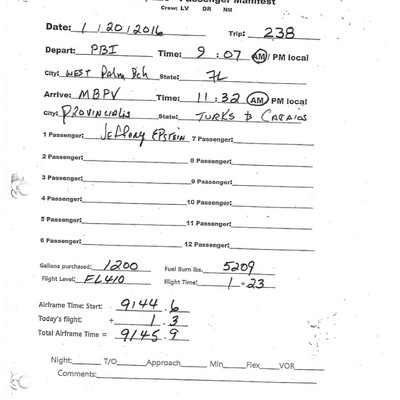 Passenger Manifest
Crew: LV DR NM
Date: 1/20/2016 Trip: 238
Depart: PBI Time: 9:07 AM/PM local
City: WEST Palm Bch State: FL
Arrive: MBPV Time: 11:32 AM/PM local
City: PROVINCIALIS State: TURKS & CAICIOS
1 Passenger: Jeffory EPSTEIN 7 Passenger:
2 Passenger: 8 Passenger:
3 Passenger: 9 Passenger:
4 Passenger: 10 Passenger:
5 Passenger: 11 Passenger:
6 Passenger: 12 Passenger:
Gallons purchased: 1200 Fuel Burn lbs. 5209
Flight Level: FL410 Flight Time: 1+23
Airframe Time: Start: 9144.6
Today's flight: + 1.3
Total Airframe Time = 9145.9
Night: T/O Approach Min Flex VOR
Comments: